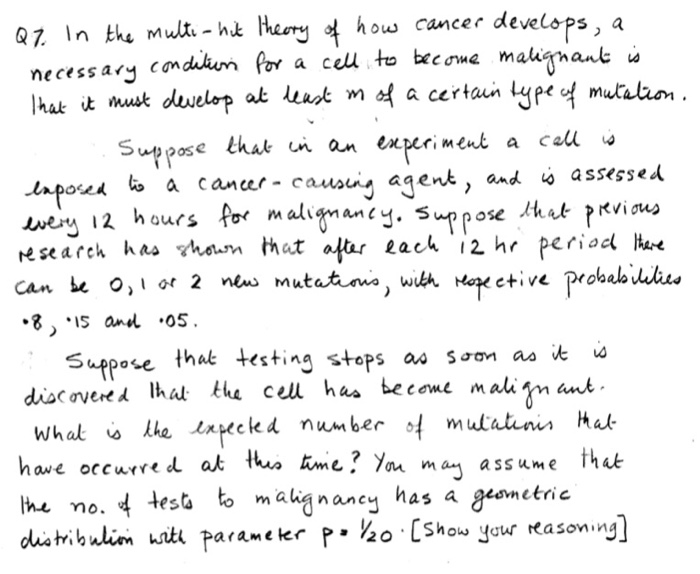 Q7. In the multi-hit theory of how cancer develops, a
necessary condition for a cell to become malignant is
that it must develop at least m of a certain type of mutation.
Suppose that in an experiment a cell is
exposed to a cancer-causing agent, and is assessed
every 12 hours for malignancy. Suppose that previous
research has shown that after each 12 hr period there
can be 0, 1 or 2 new mutations, with respective probabilities
·8, ·15 and ·05.
Suppose that testing stops as soon as it is
discovered that the cell has become malignant.
What is the expected number of mutations that
have occurred at this time? You may assume that
the no. of tests to malignancy has a geometric
distribution with parameter p = 1/20. [Show your reasoning]